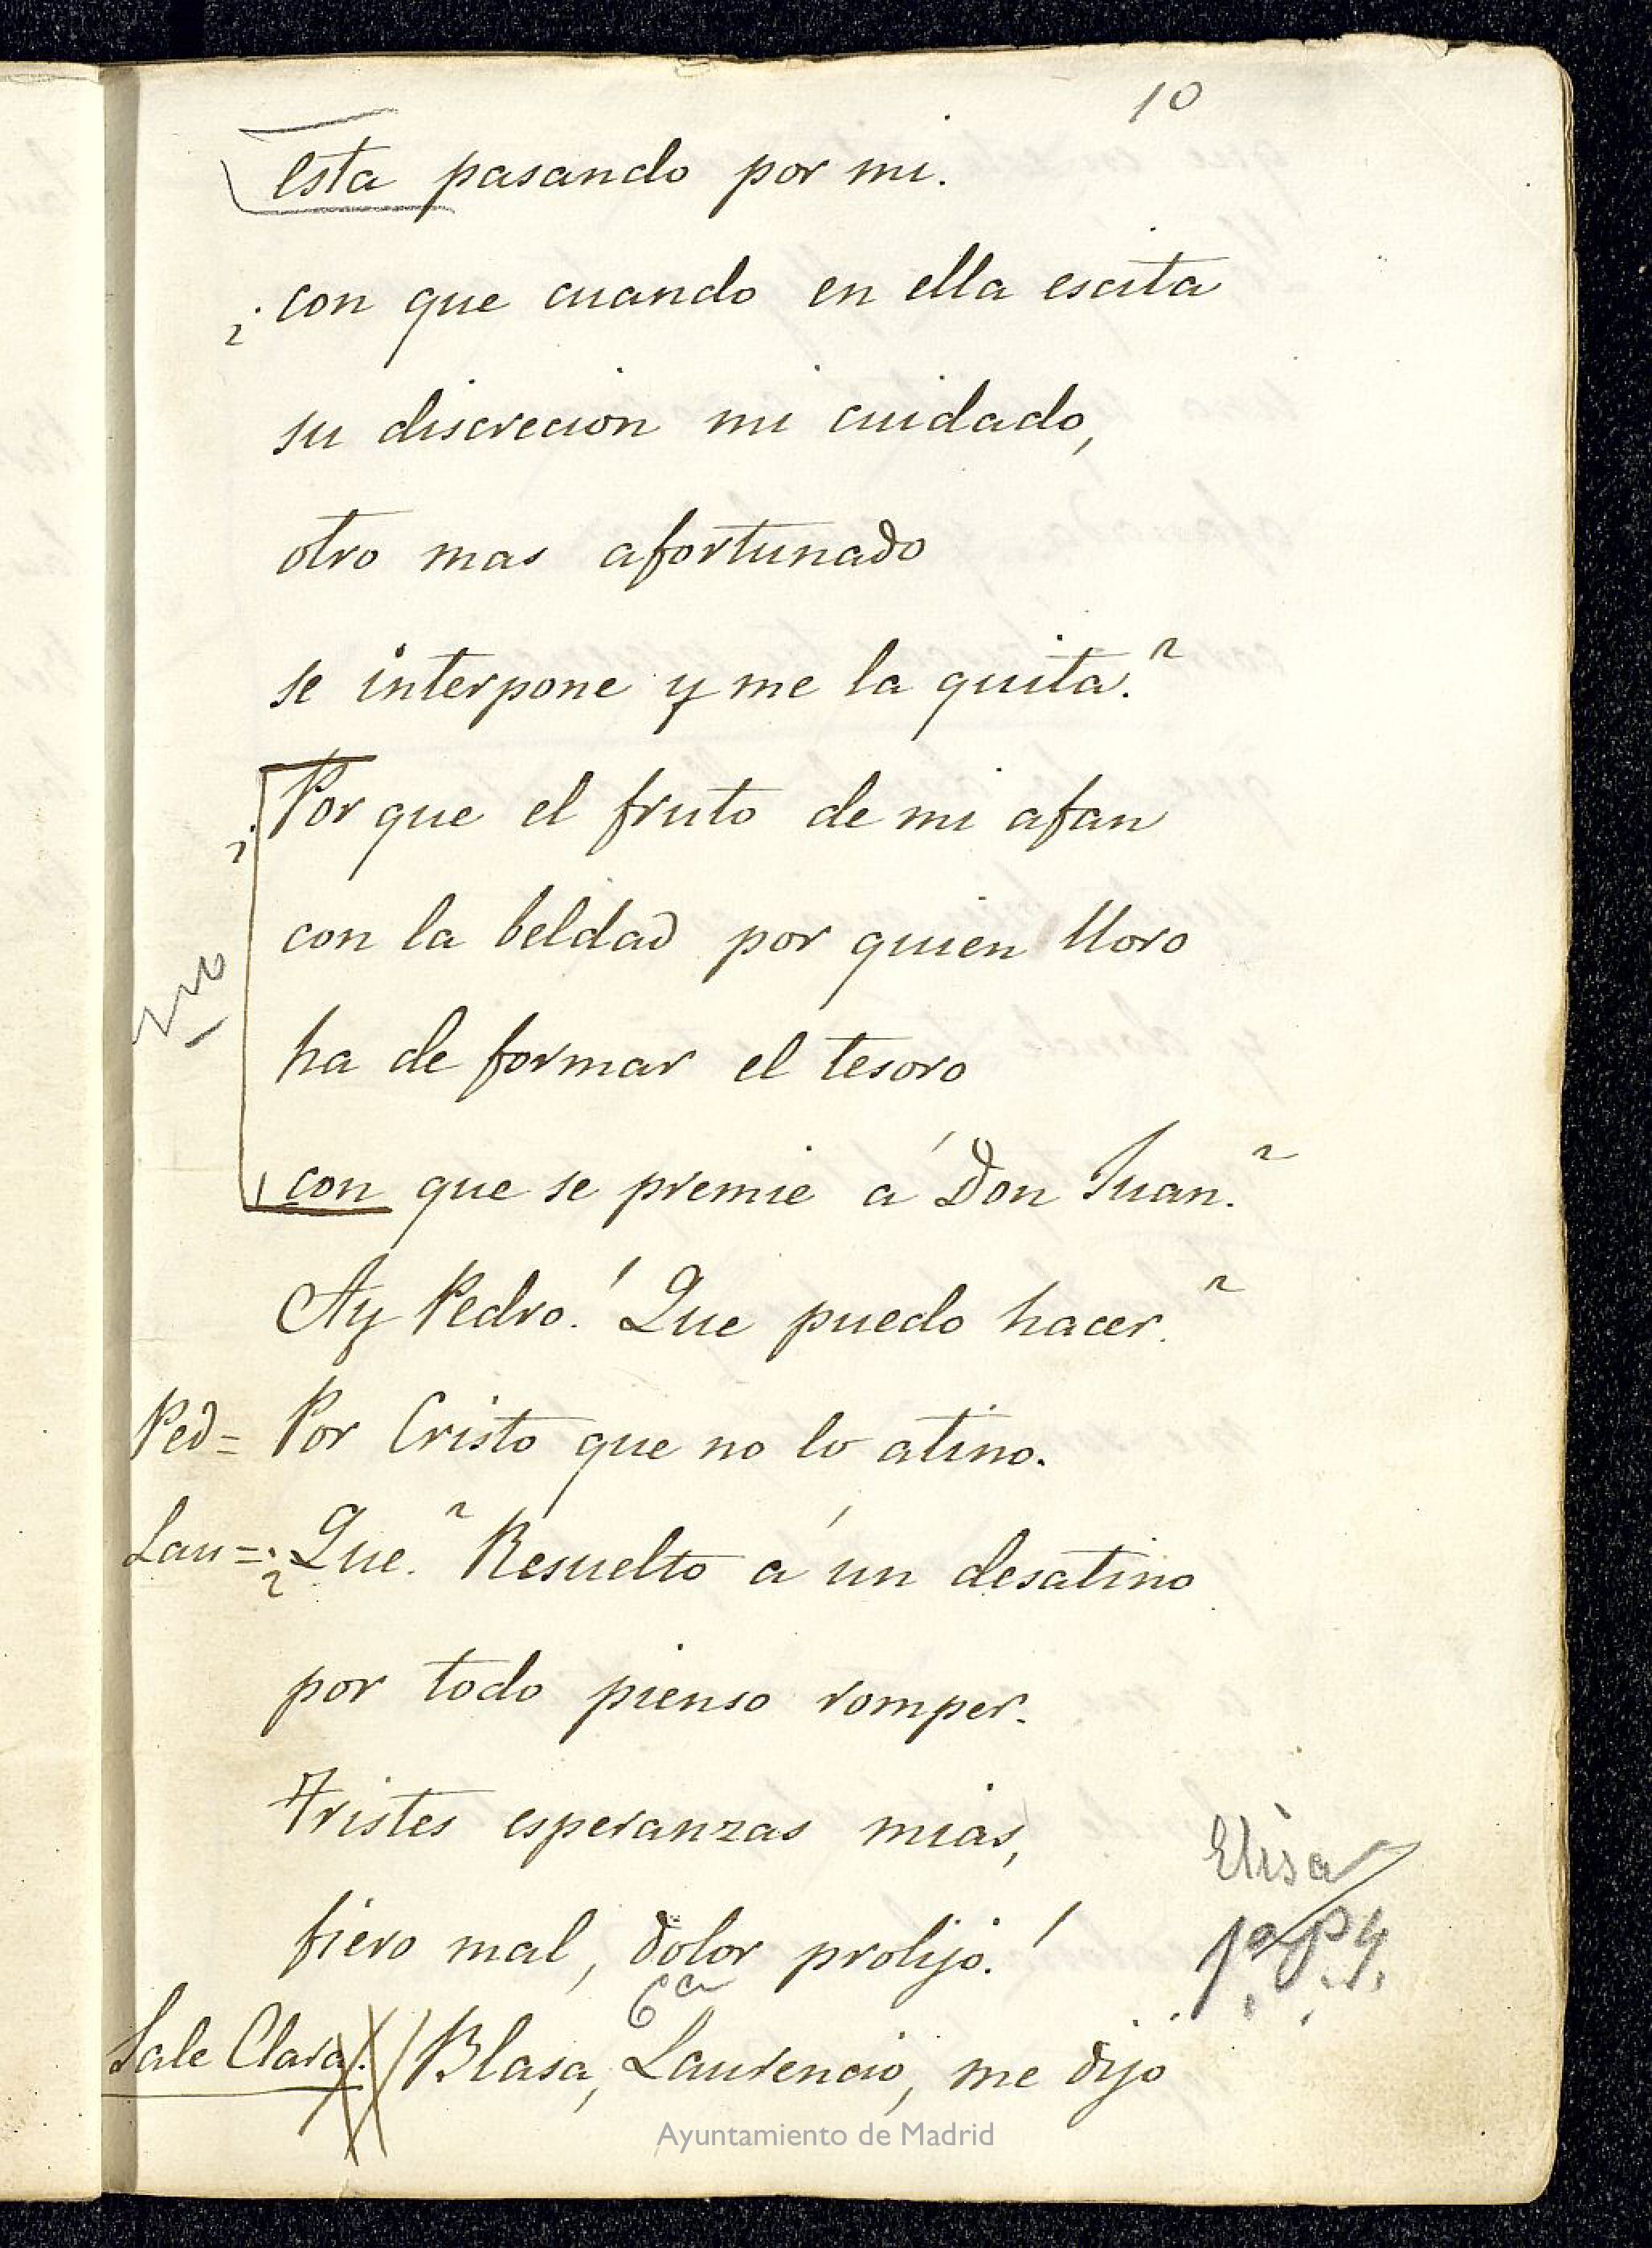 10
esta pasando por mi.
¿con que cuando en ella escita
su discrecion mi cuidado,
otro mas afortunado
se interpone y me la quita?
¿Por que el fruto de mi afan
con la beldad por quien lloro
no
ha de formar el tesoro
con que se premie á Don Juan?
Ay Pedro! Que puedo hacer?
Ped= Por Cristo que no lo atino.
Lau= ¿Que? Resuelto á un desatino
por todo pienso romper.
Tristes esperanzas mias,
Elisa
fiero mal, dolor prolijo!
1ª P.
6ª
Sale Clara. Blasa, Laurencio, me dijo
Ayuntamiento de Madrid